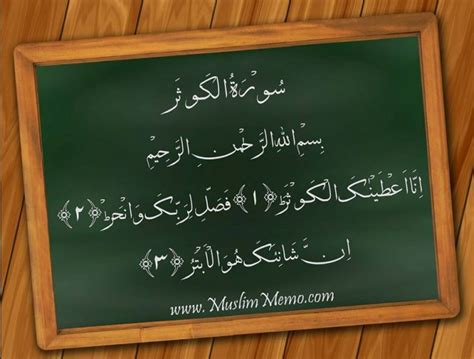 سُورَةُ الْكَوثَر
بِسْمِ اللهِ الرَّحْمٰنِ الرَّحِيْمِ
اِنَّا اَعْطَيْنٰكَ الْكَوْثَرَ ﴿١﴾ فَصَلِّ لِرَبِّكَ وَانْحَرْ ﴿٢﴾
اِنَّ شَانِئَكَ هُوَ الْاَبْتَرُ ﴿٣﴾
www.MuslimMemo.com